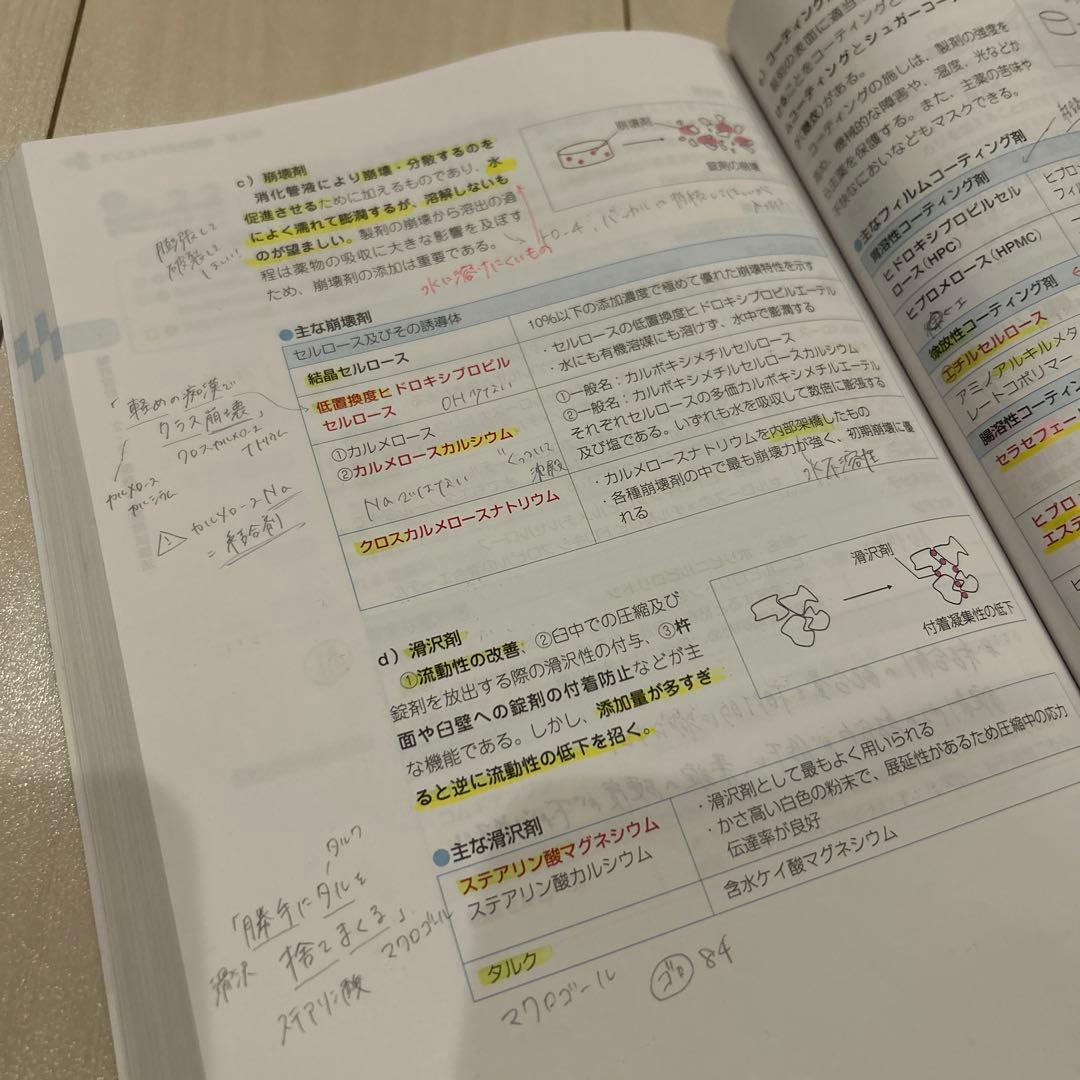 c）崩壊剤
消化管液により崩壊・分散するのを
促進させるために加えるものであり、水
によく濡れて膨潤するが、溶解しないも
のが望ましい。製剤の崩壊から溶出の過
程は薬物の吸収に大きな影響を及ぼす
ため、崩壊剤の添加は重要である。
崩壊剤
錠剤の崩壊
膨張して
破裂して
ほしい
水に溶けにくいもの
●主な崩壊剤
セルロース及びその誘導体
結晶セルロース
10%以下の添加濃度で極めて優れた崩壊特性を示す
低置換度ヒドロキシプロピル
セルロース
OH少ない
・セルロースの低置換度ヒドロキシプロピルエーテル
・水にも有機溶媒にも溶けず、水中で膨潤する
①カルメロース
②カルメロースカルシウム
Naではない
①一般名：カルボキシメチルセルロース
②一般名：カルボキシメチルセルロースカルシウム
それぞれセルロースの多価カルボキシメチルエーテル
及び塩である。いずれも水を吸収して数倍に膨張する
クロスカルメロースナトリウム
・カルメロースナトリウムを内部架橋したもの
・各種崩壊剤の中で最も崩壊力が強く、初期崩壊に優
れる
水不溶性
「軽めの痴漢で
クラス崩壊」
クロスカルメロース
ナトリウム
カルメロース
カルシウム
カルメロースNa
=結合剤
d）滑沢剤
①流動性の改善、②臼中での圧縮及び
錠剤を放出する際の滑沢性の付与、③杵
面や臼壁への錠剤の付着防止などが主
な機能である。しかし、添加量が多すぎ
ると逆に流動性の低下を招く。
滑沢剤
付着凝集性の低下
●主な滑沢剤
ステアリン酸マグネシウム
ステアリン酸カルシウム
・滑沢剤として最もよく用いられる
・かさ高い白色の粉末で、展延性があるため圧縮中の応力
伝達率が良好
タルク
含水ケイ酸マグネシウム
マクロゴール
ゴロ 84
タルク
「勝手にタルを
捨てまくる」
滑沢
マクロゴール
ステアリン酸
コーティングとシュガーコー
がある。
コーティングの施しは、製剤の強度を
機械的な障害や、湿度、光などか
を保護する。また、主薬の苦味や
なにおいなどもマスクできる。
●主なフィルムコーティング剤
胃溶性コーティング剤
ヒドロキシプロピルセル
ロース（HPC）
ヒプロメロース（HPMC）
徐放性コーティング剤
エチルセルロース
アミノアルキルメタ
レートコポリマー
腸溶性コーティン
セラセフェー
ヒプロ
エステ